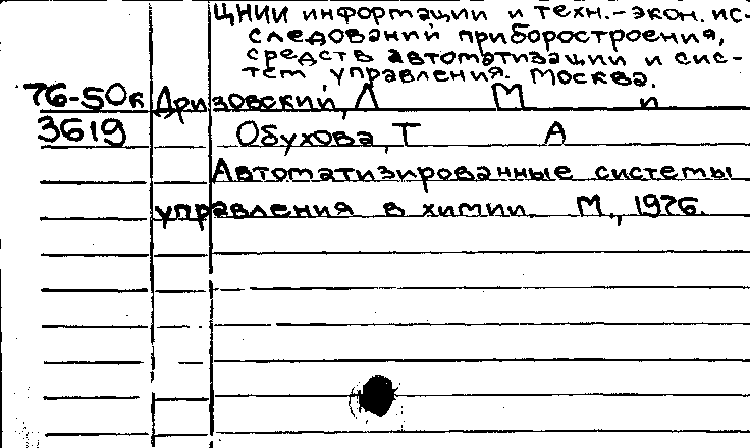 ЦНИИ информации и техн.-экон. ис-
следований приборостроения,
средств автоматизации и сис-
тем управления. Москва.
76-50к Дризовский, Л М и
3619 Обухова, Т А
Автоматизированные системы
управления в химии. М., 1976.